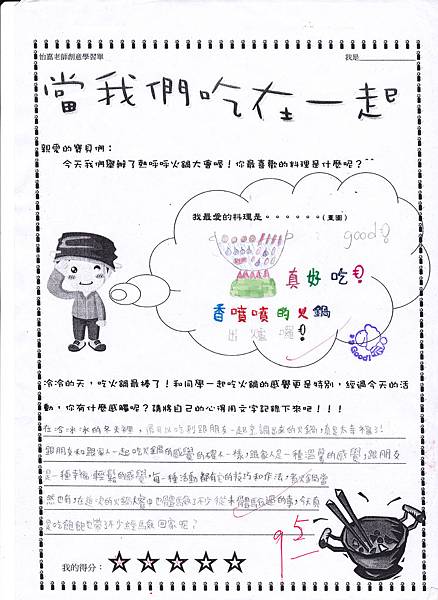 怡嘉老師創意學習單 我是
當我們吃在一起
親愛的寶貝們：
今天我們舉辦了熱呼呼火鍋大會喔！你最喜歡的料理是什麼呢？^^
我最愛的料理是‧‧‧‧‧‧(畫圖)
good!
真好吃!
香噴噴的火鍋
出爐囉!
Good!
冷冷的天，吃火鍋最棒了！和同學一起吃火鍋的感覺更是特別，經過今天的活
動，你有什麼感觸呢？請將自己的心得用文字記錄下來吧！！！
在冷冰冰的冬天裡，還可以吃到跟朋友一起烹調出來的火鍋，真是太幸福了！
跟朋友和跟家人一起吃火鍋的感覺的確不一樣，跟家人是一種溫馨的感覺，跟朋友
是一種幸福、輕鬆的感覺，每一種活動都有它的技巧和作法，當火鍋當
然也有，在這次的火鍋大會也體驗了不少從未體驗過的事，今天真
是吃飽飽也帶不少經驗回家呢？
95
我的得分：☆☆☆☆☆